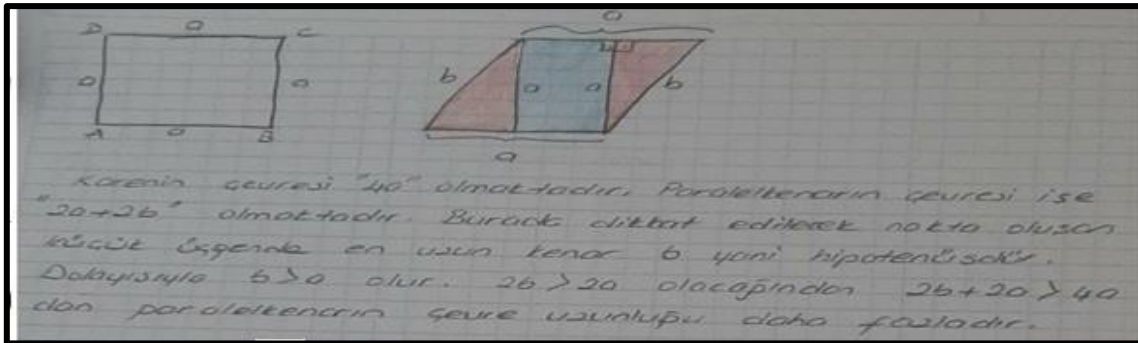 a
D a C
a a b a a b
A a B
a
Karenin çevresi "4a" olmaktadır. Paralelkenarın çevresi ise
"2a+2b" olmaktadır. Burada dikkat edilecek nokta oluşan
küçük üçgende en uzun kenar b yani hipotenüsdür.
Dolayısıyla b>a olur. 2b>2a olacağından 2b+2a>4a
dan paralelkenarın çevre uzunluğu daha fazladır.